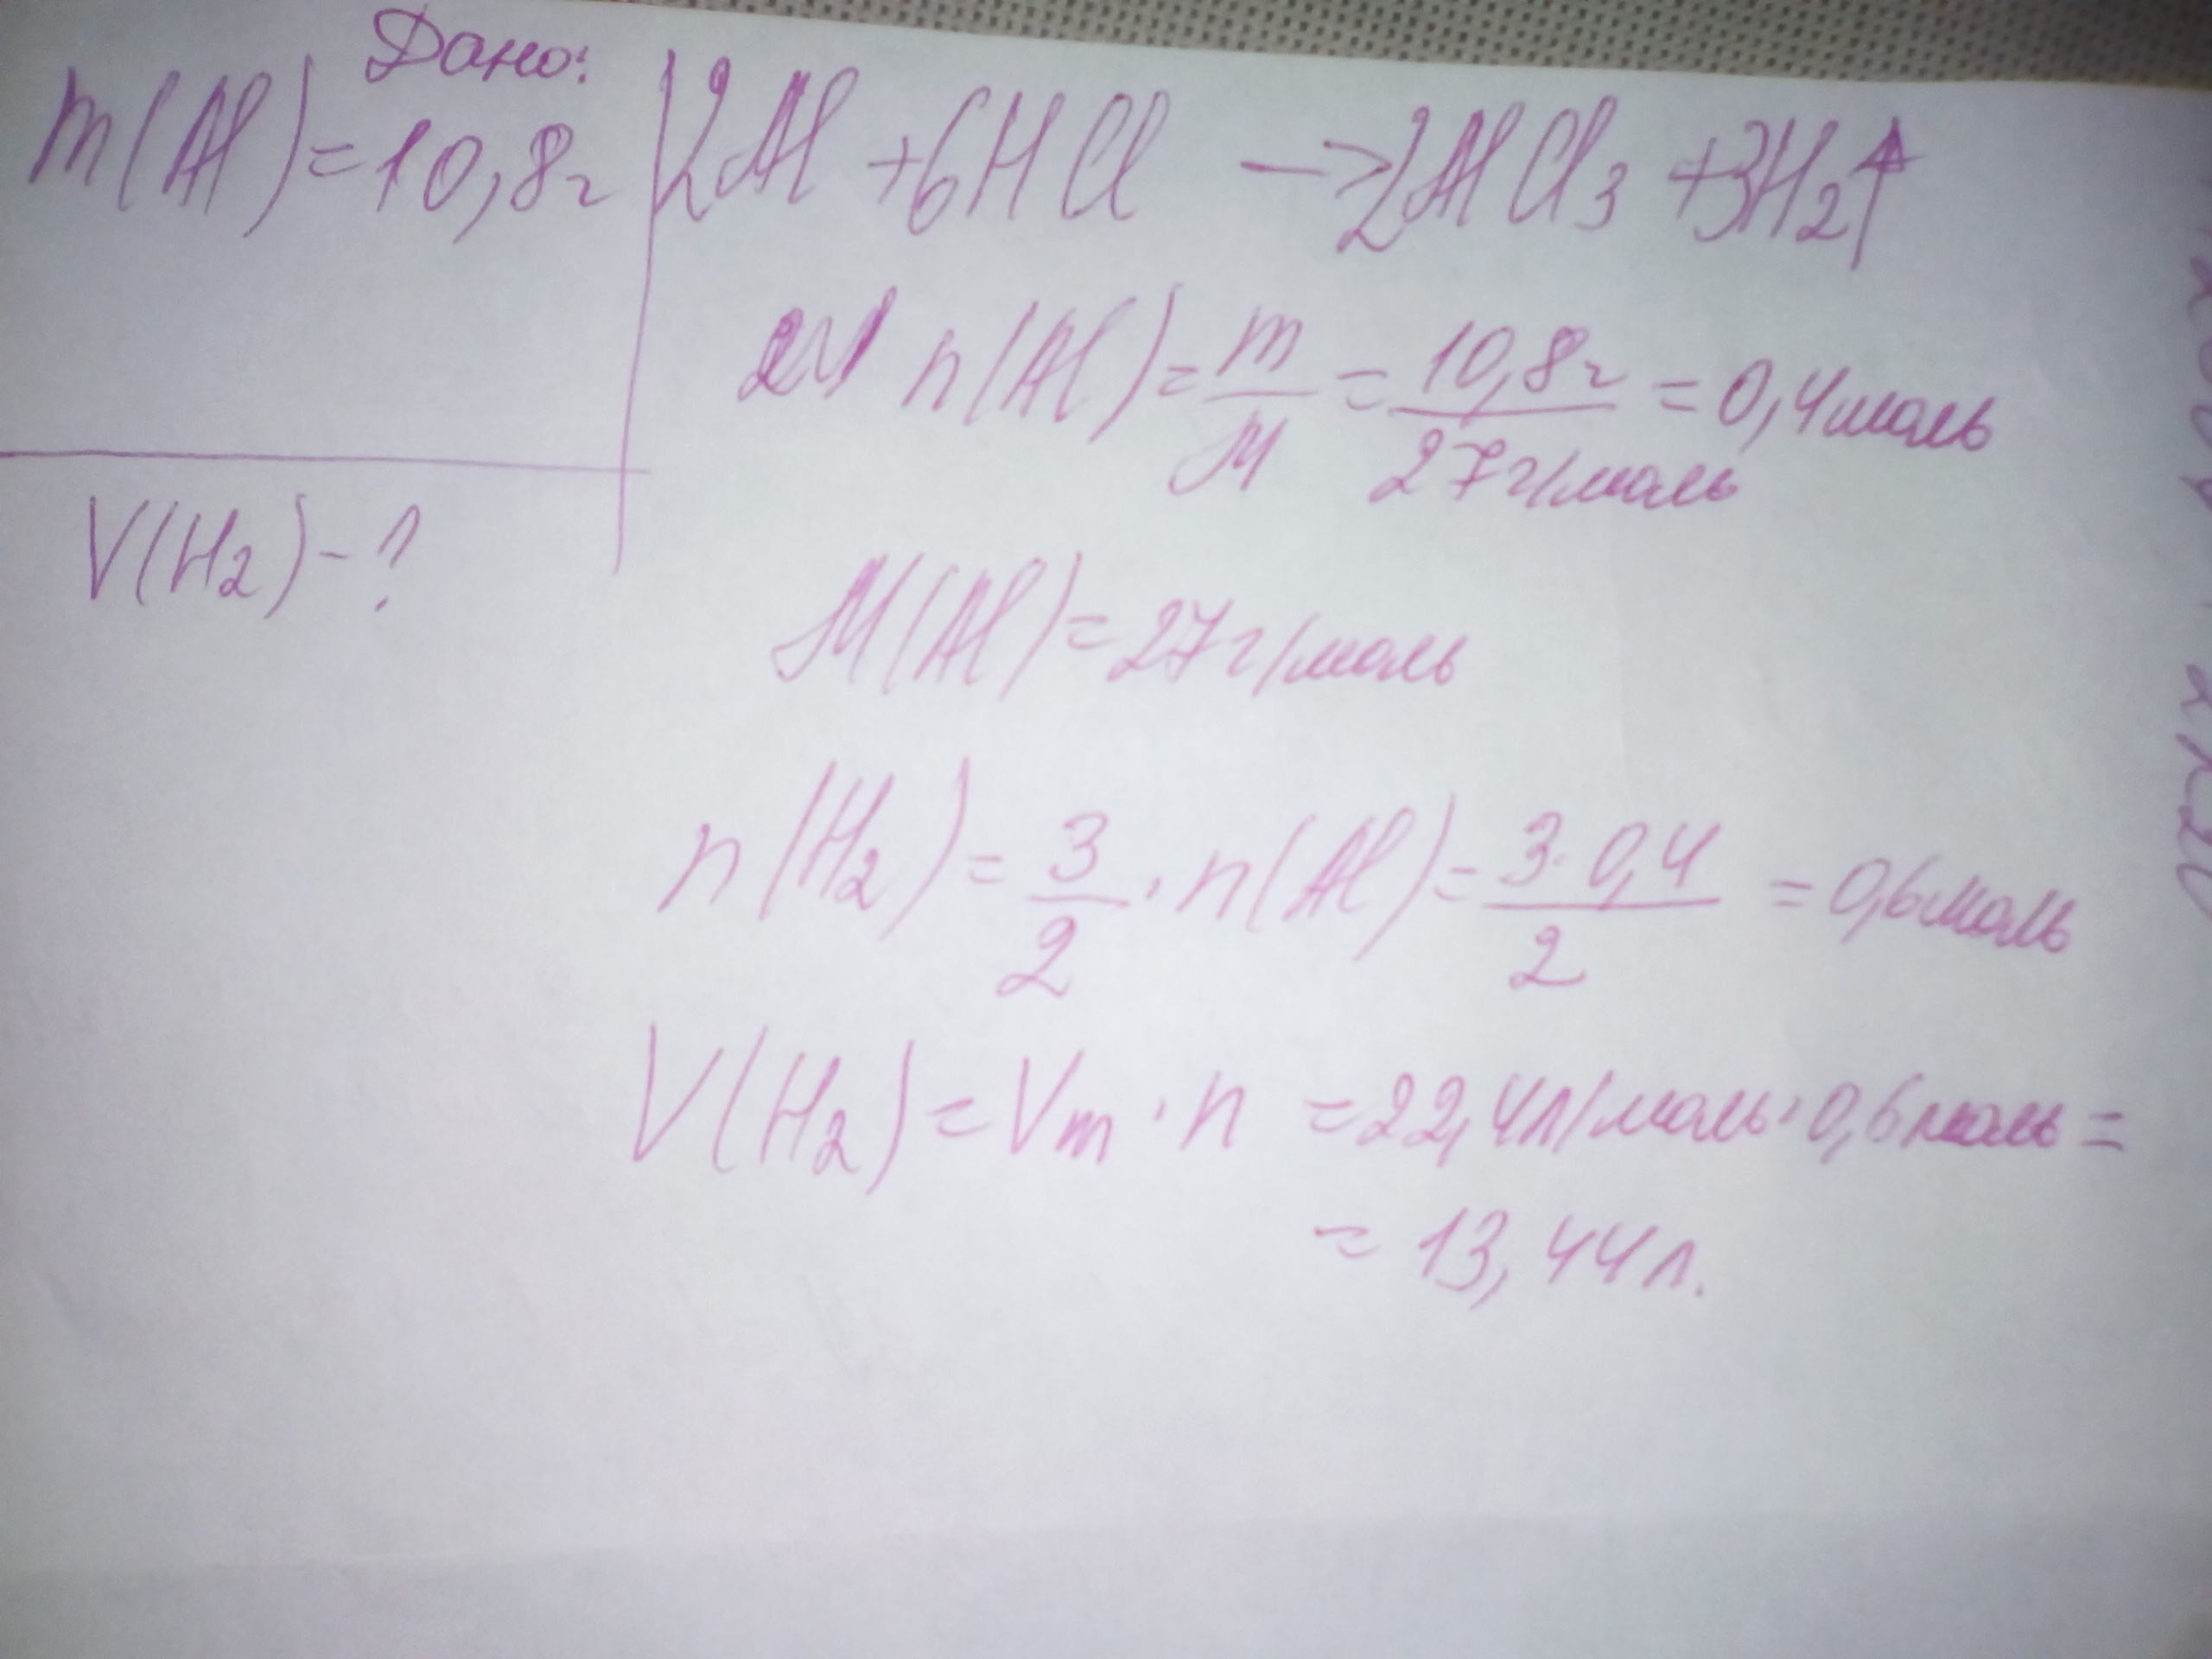 Дано:
m(Al)=10,8г
2Al + 6HCl → 2AlCl3 + 3H2↑
n(Al) = m/M = 10,8г/27г/моль = 0,4моль
V(H2) - ?
M(Al) = 27г/моль
n(H2) = 3/2 · n(Al) = 3·0,4/2 = 0,6моль
V(H2) = Vm · n = 22,4л/моль · 0,6моль =
= 13,44л.